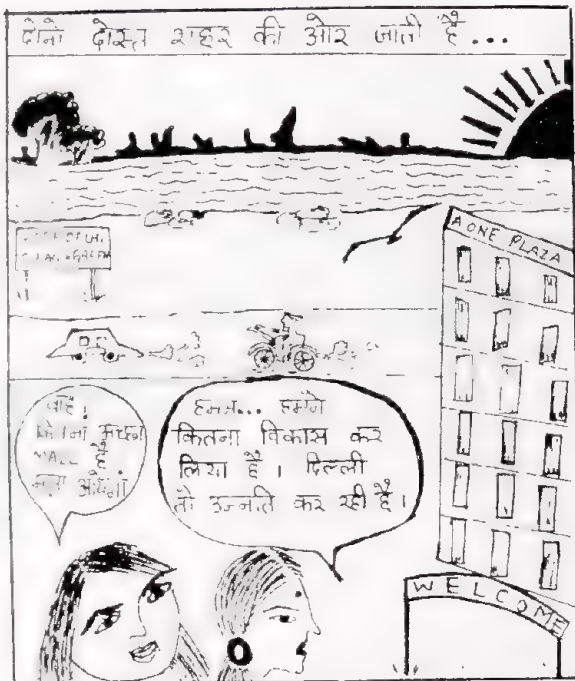 दोनो दोस्त शहर की ओर जाती है...
A ONE PLAZA
वाह!
कितना अच्छा
MALL है
मज़ा आयेगा
हम्म... हमने
कितना विकास कर
लिया है। दिल्ली
तो उन्नति कर रही है।
WELCOME